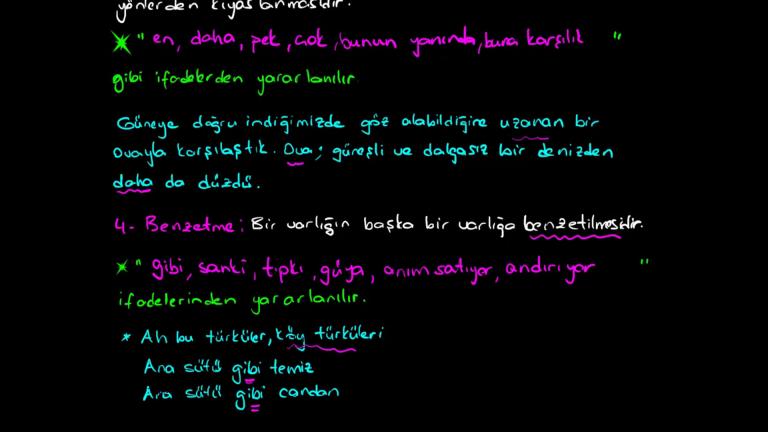 yönlerden kıyaslanmasıdır.
* " en, daha, pek, çok, bunun yanında, buna karşılık "
gibi ifadelerden yararlanılır
Güneye doğru indiğimizde göz alabildiğine uzanan bir
ovayla karşılaştık. Ova; güneşli ve dalgasız bir denizden
daha da düzdü.
4- Benzetme: Bir varlığın başka bir varlığa benzetilmesidir.
* " gibi, sanki, tıpkı, güya, anımsatıyor, andırıyor "
ifadelerinden yararlanılır.
* Ah bu türküler, köy türküleri
Ana sütü gibi temiz
Ana sütü gibi candan